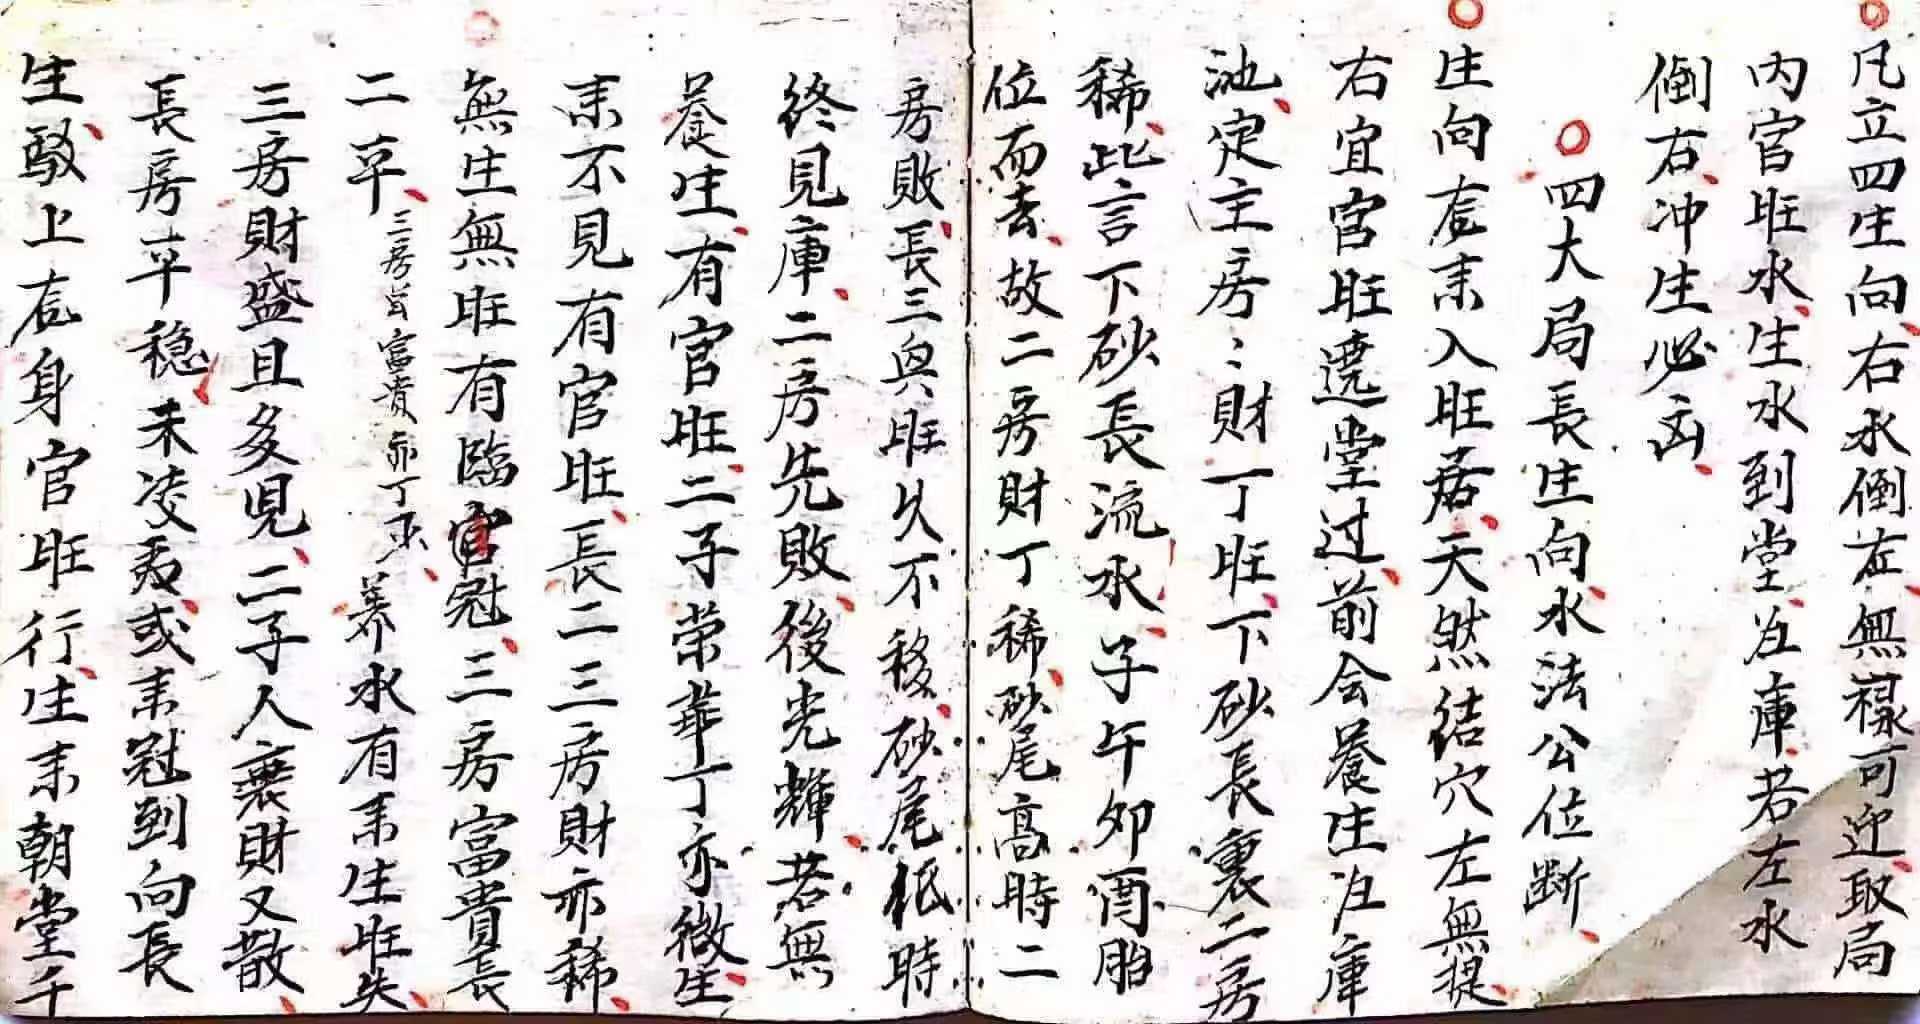 凡立四生向右水倒左無祿可迎取局
内官旺水生水到堂注庫若左水
倒右冲生必凶
四大局長生向水法公位断
生向虎来入旺居天然结穴左無提
右宜官旺遶堂过前会養生注庫
池定主房〻財丁旺下砂長裏二房
稀此言下砂長流水子午卯酉胎
位而去故二房財丁稀砂尾高時二
房敗長三與旺久不移砂尾低時
終見庫二房先敗後光輝若無
養生有官旺二子荣華丁亦微生
来不見有官旺長二三房財亦稀
無生無旺有臨官冠三房富貴長
二平三房曾富貴亦丁平養水有来生旺失
三房財盛且多児二子人衰財又散
長房平穏未凌夷或来冠到向長
生敌上虎身官旺行生来朝堂千